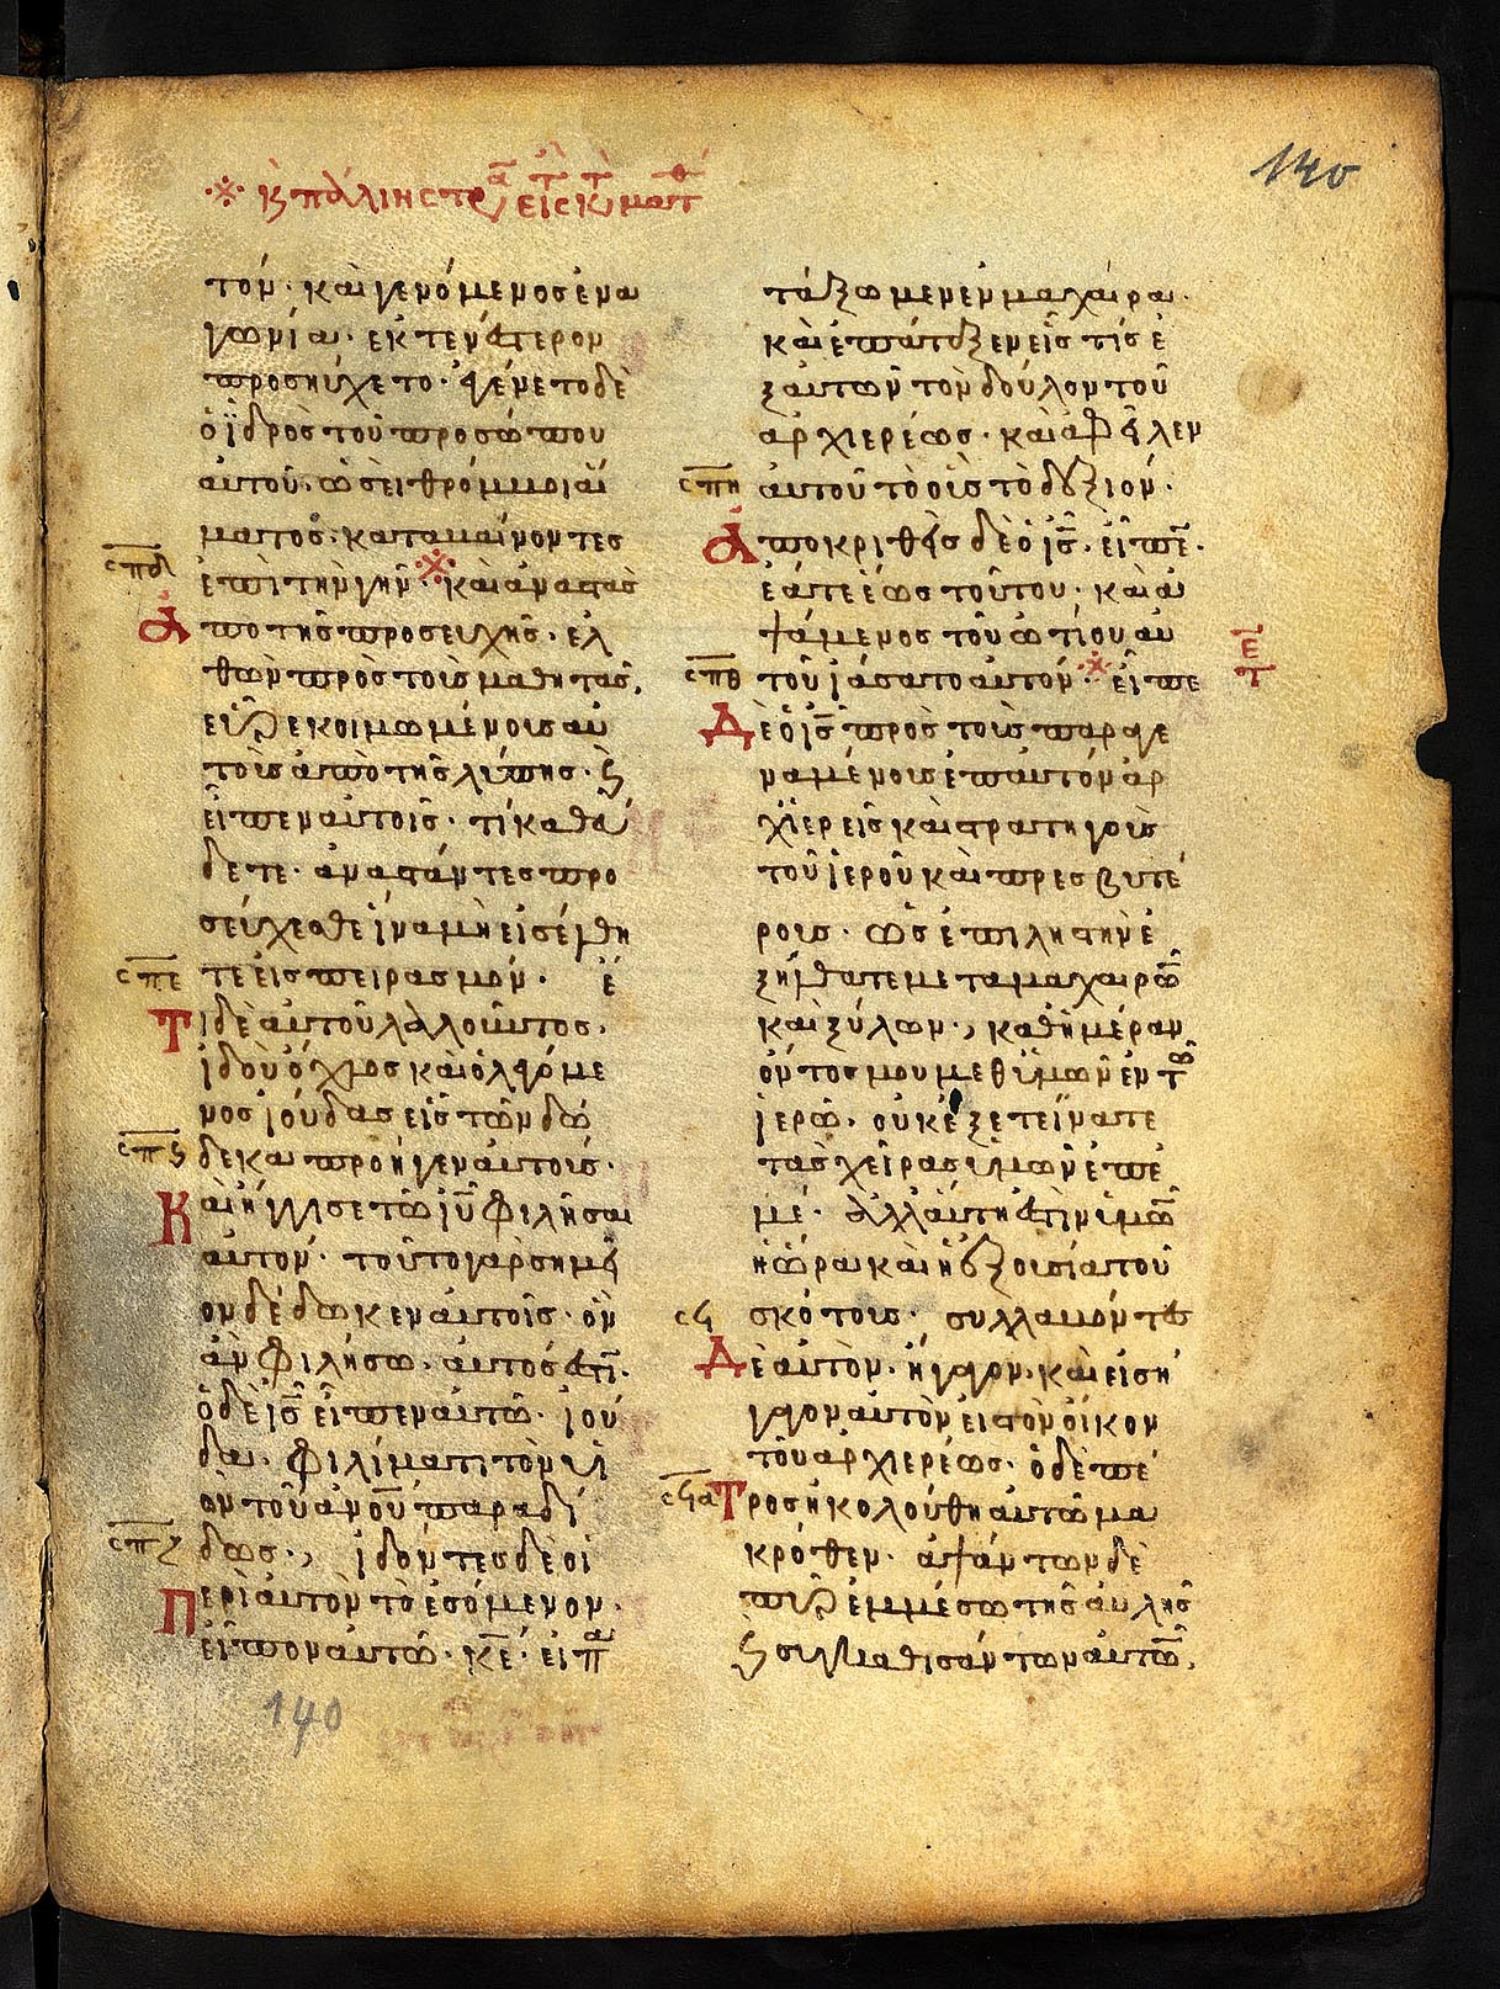 140
τόν· καὶ γενόμενος ἐν α
γωνία· ἐκτενέστερον
προσηύχετο· ἐγένετο δὲ
ὁ ἱδρὸς τοῦ προσώπου
αὐτοῦ· ὡσεὶ θρόμβοι αἵ
ματος· καταβαίνοντες
σπδ
ἐπὶ τὴν γῆν· καὶ ἀναστὰς
ἀπὸ τῆς προσευχῆς· ἐλ
θὼν πρὸς τοὺς μαθητὰς,
εὗρε κοιμωμένους αυ
τοὺς ἀπὸ τῆς λύπης· ϗ
εἶπεν αὐτοῖς· τί καθεύ
δετε· ἀναστάντες προ
σεύχεσθε ἵνα μὴ εἰσέλθη
σπε
τε εἰς πειρασμόν· ἔ
Τι δὲ αὐτοῦ λαλοῦντος·
ἰδοὺ ὄχλος καὶ ὁ λεγόμε
νος ἰούδας εἷς τῶν δώ
σπϛ
δεκα προῆγεν αὐτούς·
Καὶ ἤγγισε τῶ ἰῦ φιλῆσαι
αὐτόν· τοῦτο γὰρ σημεῖ
ον δέδωκεν αὐτοῖς· ὃν
ἂν φιλήσω· αὐτός ἐστι·
ὁ δὲ ἰς̅ εἶπεν αὐτῶ· ἰού
δα· φιλίματι τὸν υἱ
ὸν τοῦ ἀνοῦ παραδί
σπζ
δως· ἰδόντες δὲ οἱ
Περὶ αὐτὸν τὸ ἐσόμενον·
εἶπον αὐτῶ· κε̅· εἰ πα
140
τάξωμεν ἐν μαχαίρα·
καὶ ἐπάταξεν εἷς τίς ἐ
ξ αὐτῶν τὸν δοῦλον τοῦ
ἀρχιερέως· καὶ ἀφεῖλεν
σπη
αὐτοῦ τὸ οὖς τὸ δεξιόν·
Ἀποκριθεὶς δὲ ὁ ἰς̅· εἶπε·
ἐάτε ἕως τούτου· καὶ ἁ
ψάμενος τοῦ ὠτίου αυ
σπθ
τοῦ ἰάσατο αὐτόν· εἶπε
Δὲ ὁ ἰς̅ πρὸς τοὺς παραγε
ναμένους ἐπ αὐτὸν ἀρ
χϊερεῖς καὶ στρατηγοὺς
τοῦ ἱεροῦ καὶ πρεσβυτέ
ρους· ὡς ἐπὶ ληστὴν ἐ
ξήλθατε μετα μαχαιρῶν
καὶ ξύλων· καθημέραν
ὄντος μου μεθ ὑμῶν ἐν τῶ
ἱερῶ· οὐκ ἐξετείνατε
τὰς χεῖρας ὑμῶν ἐπ ἐ
μέ· ἀλλ αὕτη ἐστὶν ὑμῶν
ἡ ὥρα καὶ ἡ ἐξουσία τοῦ
σϟ
σκότους· συλλαβόντες
Δὲ αὐτὸν· ἤγαγον· καὶ εἰσή
γαγον αὐτὸν εἰς τὸν οἶκον
τοῦ ἀρχιερέως· ὁ δὲ πέ
σϟα
Τρος ἠκολούθη αὐτῶ μα
κρόθεν· ἁψάντων δὲ
πῦρ ἐμμέσω τῆς αὐλῆς
ϗ συγκαθισάντων αὐτῶν,